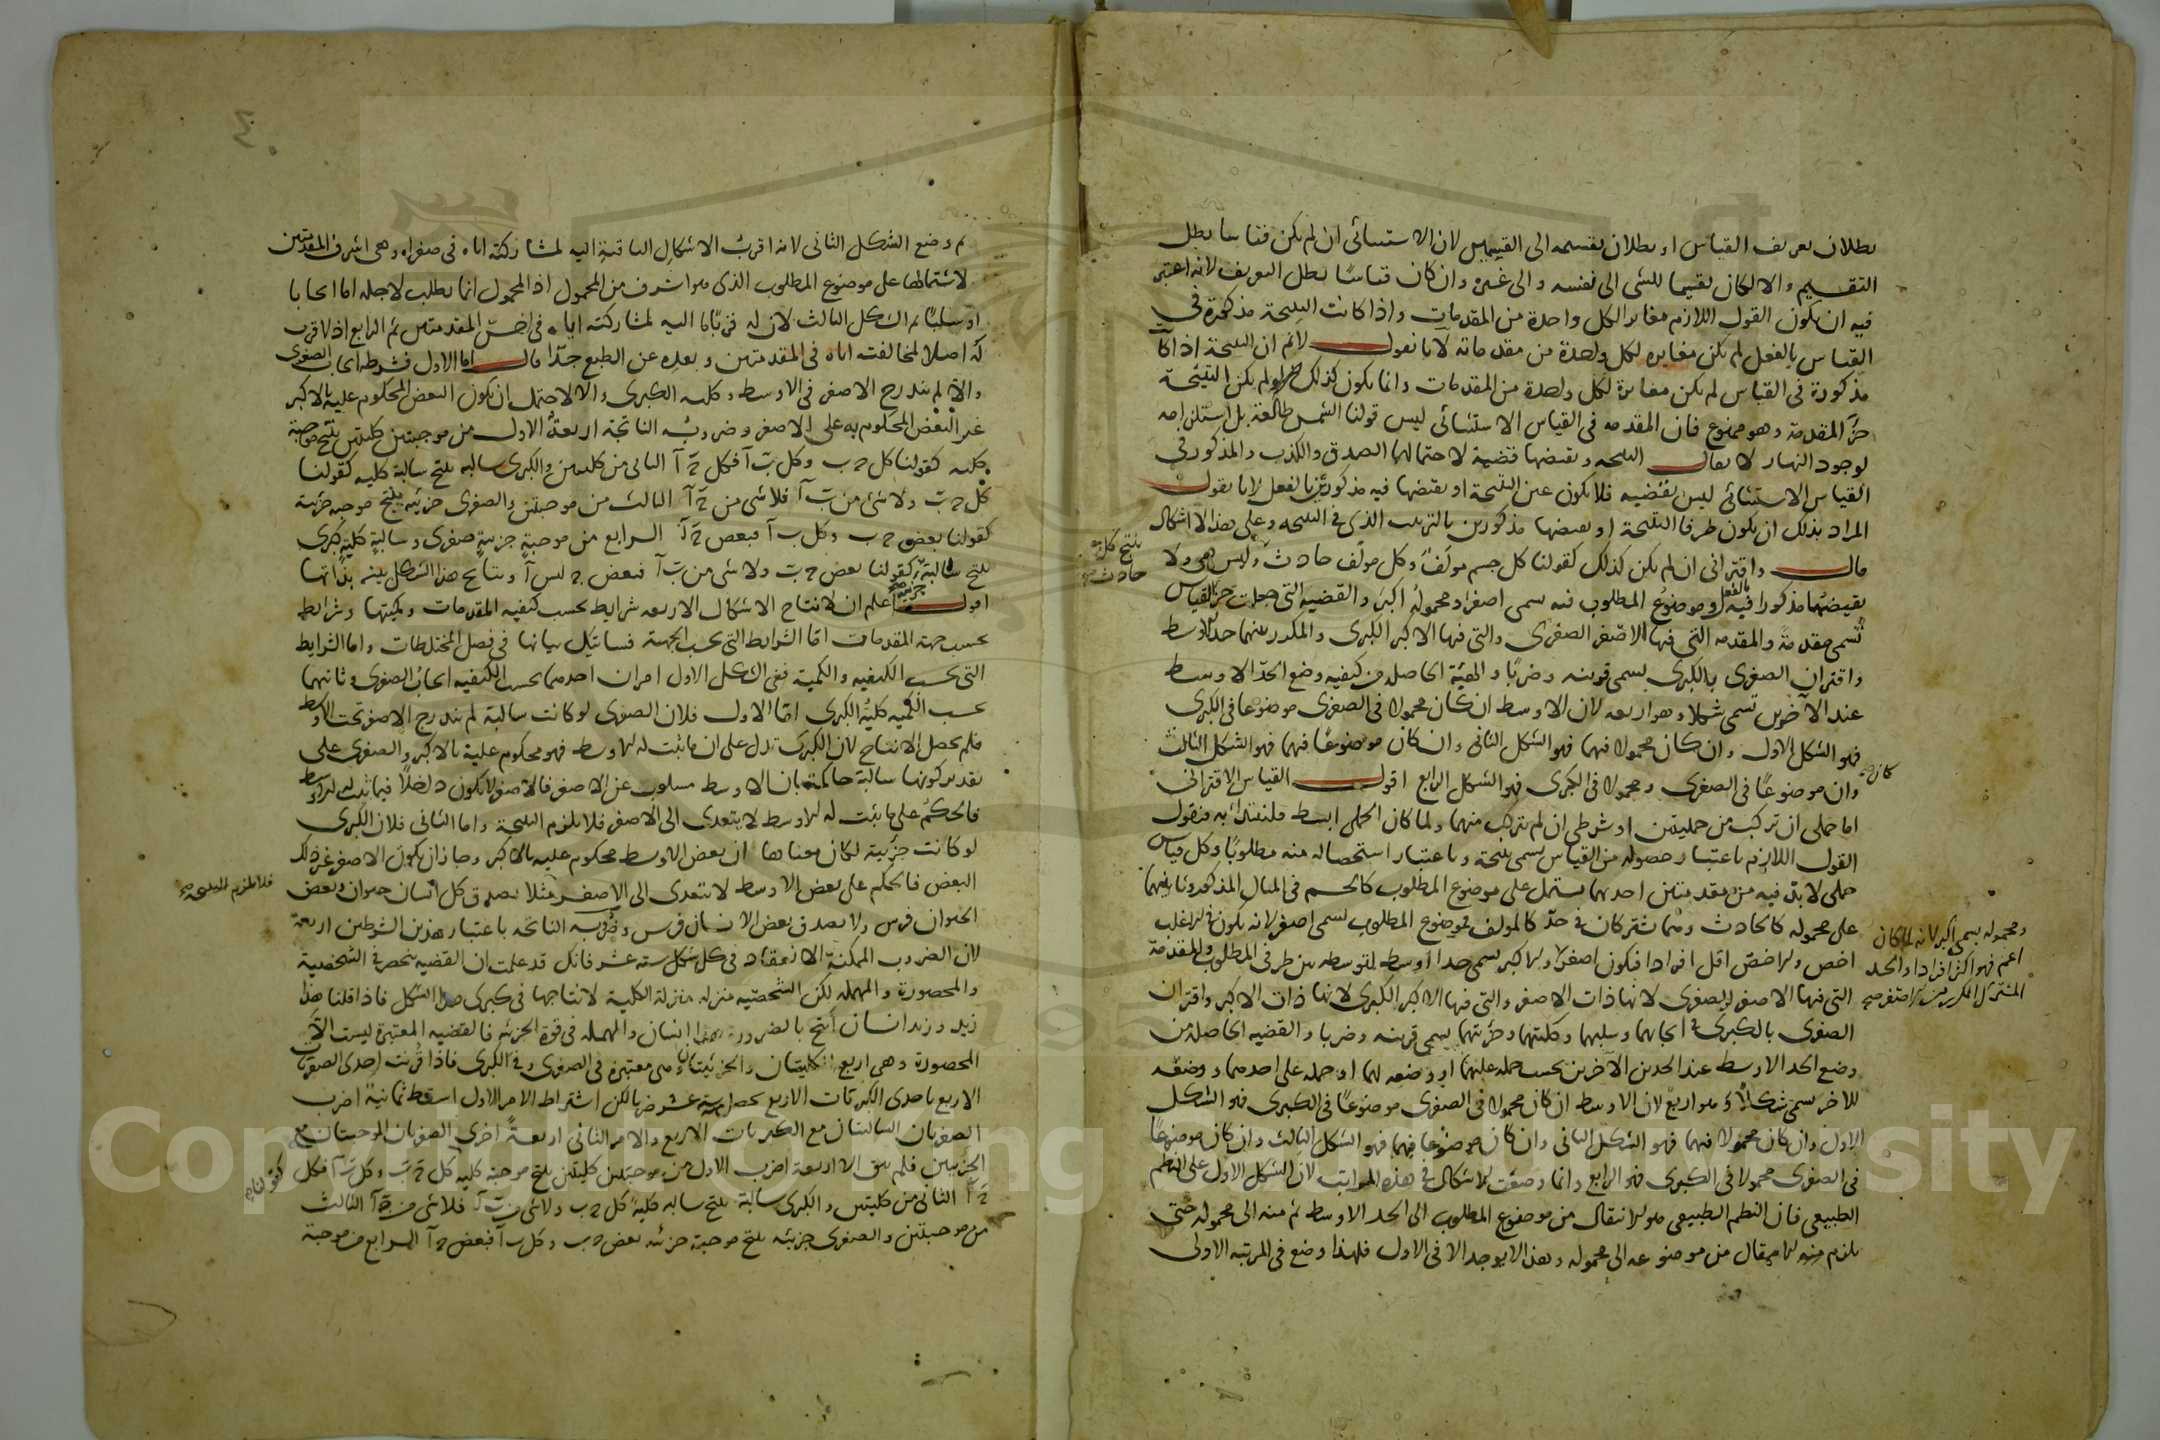 بطلان تعريف القياس او بطلان تقسيمه الى القسمين لان الاستثنائي ان لم يكن قياسا بطل
التقسيم والا لكان تقسيما للشي الى نفسه والى غيره وان كان قياسًا بطل التعريف لانه اعتبر
فيه ان يكون القول اللازم مغايرا لكل واحدة من المقدمات واذا كانت النتيجة مذكورة في
القياس بالفعل لم يكن مغايره لكل واحدة من مقدماته لانا نقول لانم ان النتيجة اذا كا
مذكورة في القياس لم يكن مغايرة لكل واحدة من المقدمات وانما يكون كذلك لو لم يكن النتيجة
جزء المقدمة وهو ممنوع فان المقدمه في القياس الاستثنائي ليس قولنا الشمس طالعة بل استلزامه
لوجود النهار لا يقال النتيجه ونقيضها قضية لاحتمالها الصدق والكذب والمذكور في
القياس الاستثنائي ليس بقضيه فلا يكون عين النتيجة او نقيضها فيه مذكورين بالفعل لانا نقول
المراد بذلك ان يكون طرفا النتيجة او نقيضها مذكورين بالترتيب الذي في النتيجه وعلى هذا لا اشكال
قال واقتراني ان لم يكن كذلك كقولنا كل جسم مولف وكل مولف حادث وليس هو ولا
ينتج كل
حادث
نقيضها مذكورا فيه بالفعل وموضوع المطلوب فيه يسمى اصغر ومحموله اكبر والقضيه التي جعلت جزء القياس
تسمى مقدمة والمقدمه التي فيها الاصغر الصغرى والتي فيها الاكبر الكبرى والمكرر بينهما حدًا اوسط
واقتران الصغرى بالكبرى يسمى قرينه وضربًا والهيئة الحاصله من كيفيه وضع الحد الاوسط
عند الاخرين تسمى شكلا وهو اربعه لان الاوسط ان كان محمولا في الصغرى موضوعا في الكبرى
فهو الشكل الاول وان كان محمولا فيهما فهو الشكل الثاني وان كان موضوعًا فيهما فهو الشكل الثالث
وان موضوعًا في الصغرى ومحمولا في الكبرى فهو الشكل الرابع اقول القياس الاقتراني
كان
اما حملي ان تركب من حمليتين او شرطي ان لم يتركب منهما ولما كان الحملي ابسط فلنبتدأ به فنقول
القول اللازم باعتبار حصوله من القياس يسمى نتيجة وباعتبار استحصاله منه مطلوبًا وكل قياس
حملي لا بد فيه من مقدمتين احدهما يشتمل على موضوع المطلوب كالجسم في المثال المذكور وثانيهما
على محموله كالحادث وهما يشتركان في حد كالمولف فموضوع المطلوب يسمى اصغر لانه يكون في الاغلب
ومحموله يسمى اكبر لانه لما كان
اعم فهو اكثر افرادا والحد
المشترك المكرر بين الاصغر
اخص والاخص اقل افرادا فيكون اصغر والاكبر يسمى حدا اوسط لتوسطه بين طرفي المطلوب والمقدمة
التي فيها الاصغر الصغرى لانها ذات الاصغر والتي فيها الاكبر الكبرى لانها ذات الاكبر واقتران
الصغرى بالكبرى في ايجابهما وسلبهما وكليتهما وجزئيتهما يسمى قرينه وضربا والقضيه الحاصله من
وضع الحد الاوسط عند الحدين الاخرين بحسب حمله عليهما او وضعه لهما او حمله على احدهما ووضعه
للاخر يسمى شكلا وهو اربع لان الاوسط ان كان محمولا في الصغرى موضوعًا في الكبرى فهو الشكل
الاول وان كان محمولا فيهما فهو الشكل الثاني وان كان موضوعا فيهما فهو الشكل الثالث وان كان موضوعًا
في الصغرى محمولا في الكبرى فهو الرابع وانما وضعت الاشكال في هذه المراتب لان الشكل الاول على النظم
الطبيعي فان النظم الطبيعي هو الانتقال من موضوع المطلوب الى الحد الاوسط ثم منه الى محموله حتى
يلزم منه الانتقال من موضوعه الى محموله وهذا لا يوجد الا في الاول فلهذا وضع في المرتبه الاولى
٤
ثم وضع الشكل الثاني لانه اقرب الاشكال الباقية اليه لمشاركته اياه في صغراه وهي اشرف المقدمتين
لاشتمالها على موضوع المطلوب الذي هو اشرف من المحمول اذ المحمول انما يطلب لاجله اما ايجابا
او سلبًا ثم الشكل الثالث لان له قربًا ما اليه لمشاركته اياه في اخس المقدمتين ثم الرابع اذ لا قرب
له اصلا لمخالفته اياه في المقدمتين وبعده عن الطبع جدًا قال اما الاول فشرطه ايجاب الصغرى
والا لم يندرج الاصغر في الاوسط وكليه الكبرى والا لاحتمل ان يكون البعض المحكوم عليه بالاكبر
غير البعض المحكوم به على الاصغر وضروبه الناتجة اربعة الاول من موجبتين كليتين ينتج موجبة
كليه كقولنا كل ج ب وكل ب آ فكل ج آ الثاني من كليتين والكبرى سالبه ينتج سالبة كليه كقولنا
كل ج ب ولا شي من ب آ فلا شي من ج آ الثالث من موجبتين والصغرى جزئيه ينتج موجبه جزئية
كقولنا بعض ج ب وكل ب آ فبعض ج آ الرابع من موجبة جزئية صغرى وسالبة كلية كبرى
ينتج سالبة جزئية كقولنا بعض ج ب ولا شي من ب آ فبعض ج ليس آ ونتايج هذا الشكل بينه بذاتها
اقول اعلم ان لانتاج الاشكال الاربعه شرايط بحسب كيفيه المقدمات وكميتها وشرايط
بحسب جهة المقدمات اما الشرايط التي بحسب الجهة فسيأتيك بيانها في فصل المختلطات واما الشرايط
التي بحسب الكيفيه والكمية ففي الشكل الاول امران احدهما بحسب الكيفيه ايجاب الصغرى وثانيهما
بحسب الكميه كلية الكبرى اما الاول فلان الصغرى لو كانت سالبة لم يندرج الاصغر تحت الاوسط
فلم يحصل الانتاج لان الكبرى تدل على ان ما ثبت له الاوسط فهو محكوم عليه بالاكبر والصغرى على
تقدير كونها سالبة حاكمة بان الاوسط مسلوب عن الاصغر فالاصغر لا يكون داخلا فيما ثبت له الاوسط
فالحكم على ما يثبت له الاوسط لا يتعدى الى الاصغر فلا يلزم النتيجة واما الثاني فلان الكبرى
لو كانت جزئية لكان معناها ان بعض الاوسط محكوم عليه بالاكبر وجاز ان يكون الاصغر غير ذلك
البعض فالحكم على بعض الاوسط لا يتعدى الى الاصغر مثلا يصدق كل انسان حيوان وبعض
فلا يلزم النتيجة
الحيوان فرس ولا يصدق بعض الانسان فرس وضروبه الناتجه باعتبار هذين الشرطين اربعة
لان الضروب الممكنة الانعقاد في كل شكل سته عشر فانك قد علمت ان القضيه منحصر في الشخصية
والمحصورة والمهمله لكن الشخصيه منزله منزلة الكلية لانتاجها في كبرى هذا الشكل فاذا قلنا هذا
زيد وزيد انسان انتج بالضرورة هذا انسان والمهمله في قوة الجزئيه فالقضيه المعتبرة ليست الا
المحصورة وهي اربع الكليتان والجزئيتان وهي معتبرة في الصغرى وفي الكبرى فاذا قرنت احدى الصغريات
الاربع باحدى الكبريات الاربع يحصل ستة عشر ضربا لكن اشتراط الامر الاول اسقط ثمانية اضرب
الصغريان السالبتان مع الكبريات الاربع والامر الثاني اربعة اخرى الصغريان الموجبتان مع
الجزئيتين فلم يبق الا اربعة اضرب الاول من موجبتين كليتين ينتج موجبة كليه كل ج ب وكل ب آ فكل
كقولنا
ج آ الثاني من كليتين والكبرى سالبة ينتج سالبه كلية كل ج ب ولا شي من ب آ فلا شي من ج آ الثالث
من موجبتين والصغرى جزئيه ينتج موجبة جزئيه بعض ج ب وكل ب آ فبعض ج آ الرابع من موجبة